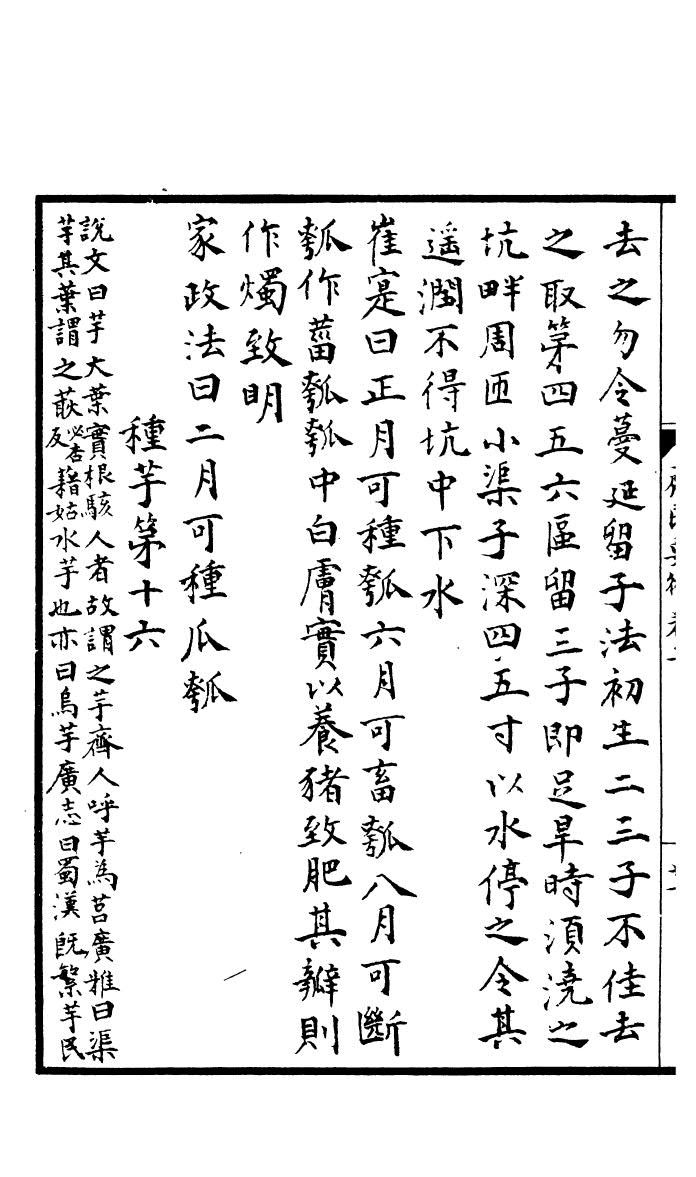 去之勿令蔓延留子法初生二三子不佳去
之取第四五六區留三子即足旱時須澆之
坑畔周匝小渠子深四五寸以水停之令其
遥潤不得坑中下水
崔寔曰正月可種瓠六月可畜瓠八月可斷
瓠作蓄瓠瓠中白膚實以養猪致肥其瓣則
作燭致明
家政法曰二月可種瓜瓠
種芋第十六
說文曰芋大葉實根駭人者故謂之芋齊人呼芋為莒廣雅曰渠
芋其葉謂之䓈必杏反藉姑水芋也亦曰烏芋廣志曰蜀漢既繁芋民